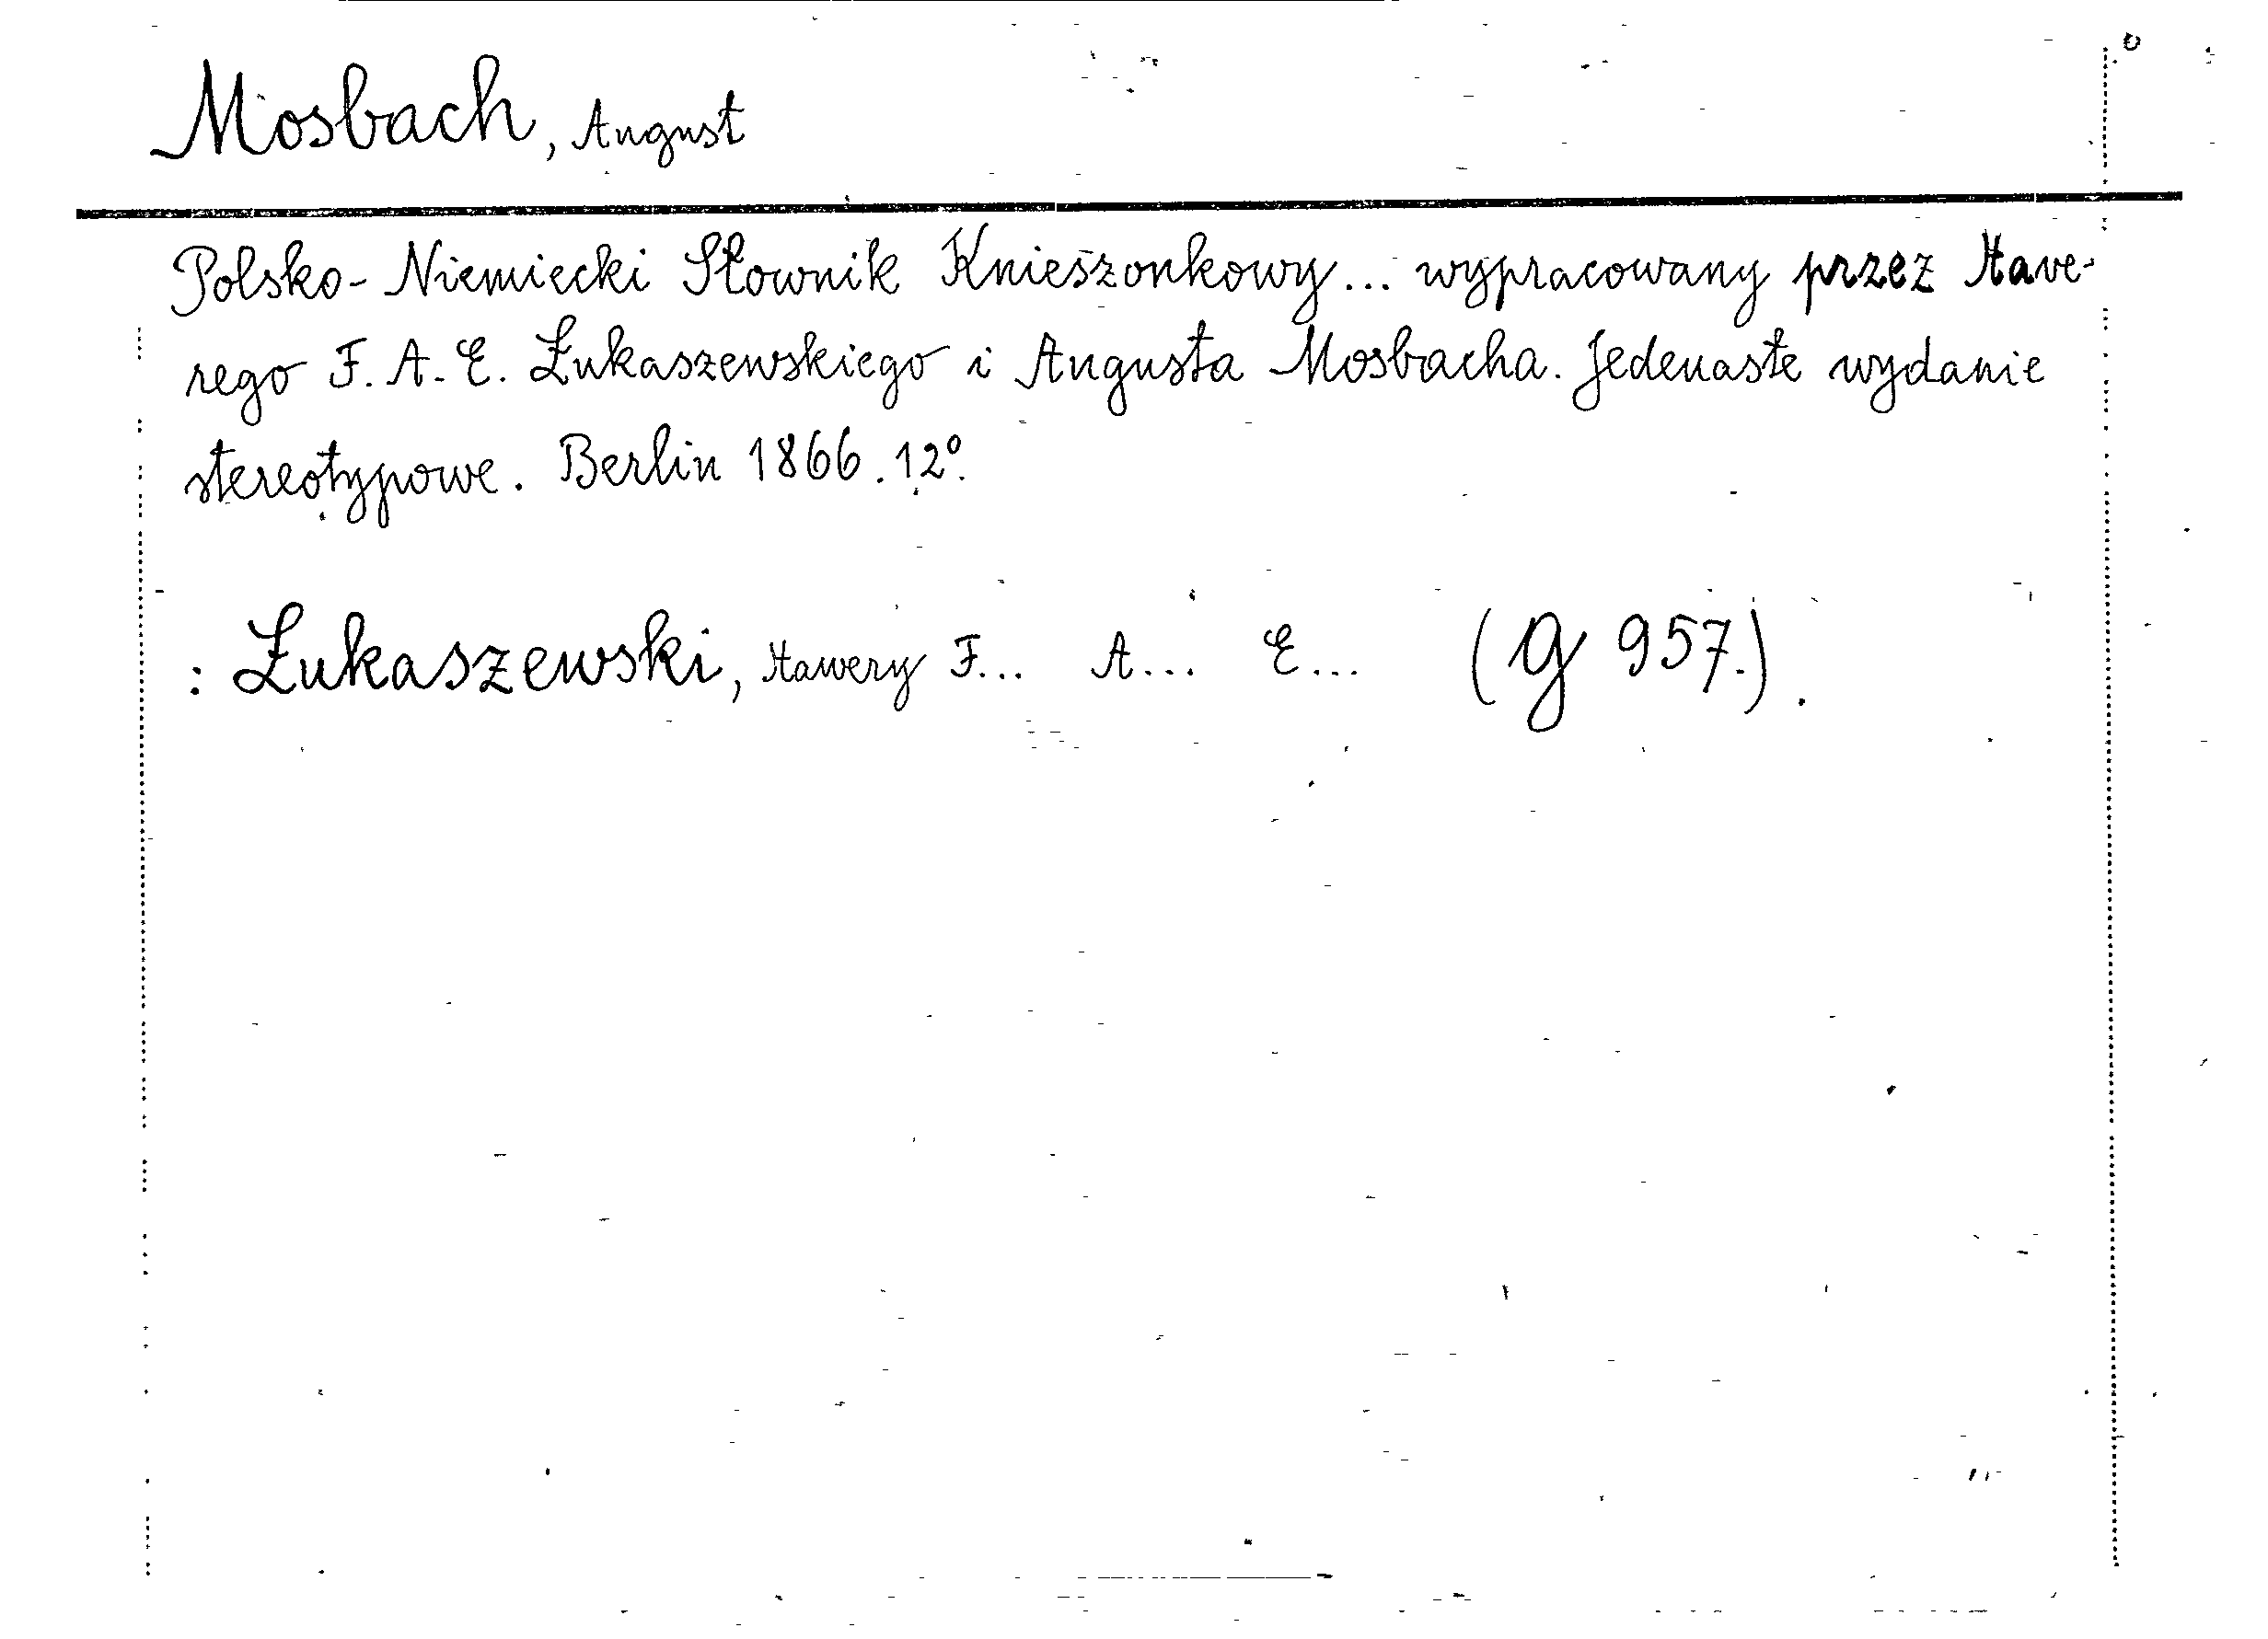 Mosbach, August
Polsko-Niemiecki Słownik Knieszonkowy... wypracowany przez Xave-
rego F. A. E. Łukaszewskiego i Augusta Mosbacha. Jedenaste wydanie
stereotypowe. Berlin 1866. 12°.
: Łukaszewski, Xawery F... A... E... (g 957.).